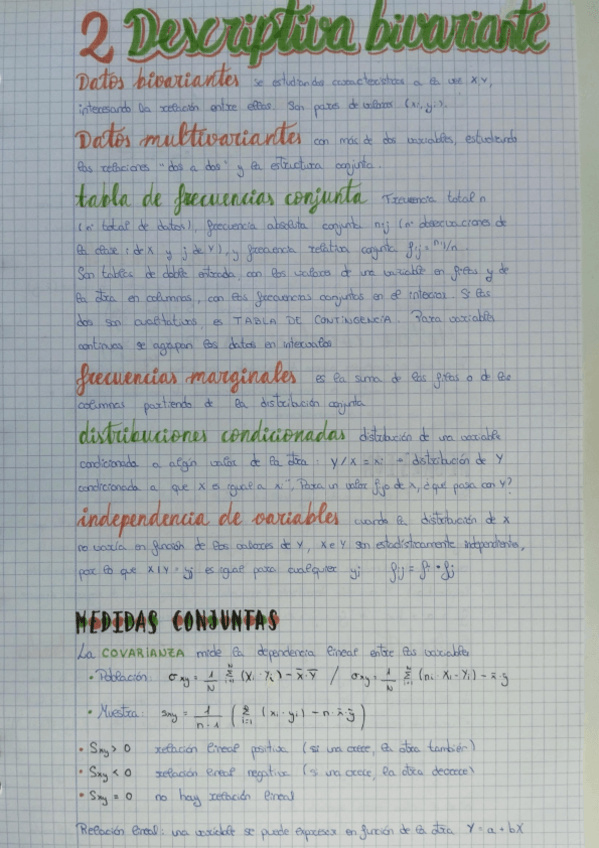 2 Descriptiva bivariante
Datos bivariantes se estudiandos características a la vez X,Y,
interesando la relación entre ellas. Son pares de valores (xi, yi).
Datos multivariantes con más de dos variables, estudiando
las relaciones "dos a dos" y la estructura conjunta.
tabla de frecuencias conjunta Frecuencia total n
(nº total de datos), frecuencia absoluta conjunta nij (nº observaciones de
la clase i de X y j de Y), y frecuencia relativa conjunta fij = nij/n.
Son tablas de doble entrada, con los valores de una variable en filas y de
la otra en columnas, con las frecuencias conjuntas en el interior. Si las
dos son cualitativas, es TABLA DE CONTINGENCIA. Para variables
continuas se agrupan los datos en intervalos
frecuencias marginales es la suma de las filas o de las
columnas partiendo de la distribución conjunta
distribuciones condicionadas distribución de una variable
condicionada a algún valor de la otra: Y/X = xi → "distribución de Y
condicionada a que X es igual a xi". Para un valor fijo de x, ¿qué pasa con Y?
independencia de variables cuando la distribución de X
no varía en función de los valores de Y, X e Y son estadísticamente independientes,
por lo que X|Y = yj es igual para cualquier yj fij = fi · fj
MEDIDAS CONJUNTAS
La COVARIANZA mide la dependencia lineal entre las variables
• Población: σxy = 1/N Σ i=1 N (Xi · Yi) - x̄ · Ȳ / σxy = 1/N Σ i=1 (ni · Xi · Yi) - x̄ · ȳ
• Muestra: sxy = 1/n-1 ( Σ i=1 (xi · yi) - n · x̄ · ȳ )
• Sxy > 0 relación lineal positiva (si una crece, la otra también)
• Sxy < 0 relación lineal negativa (si una crece, la otra decrece)
• Sxy = 0 no hay relación lineal
Relación lineal: una variable se puede expresar en función de la otra Y = a + bX